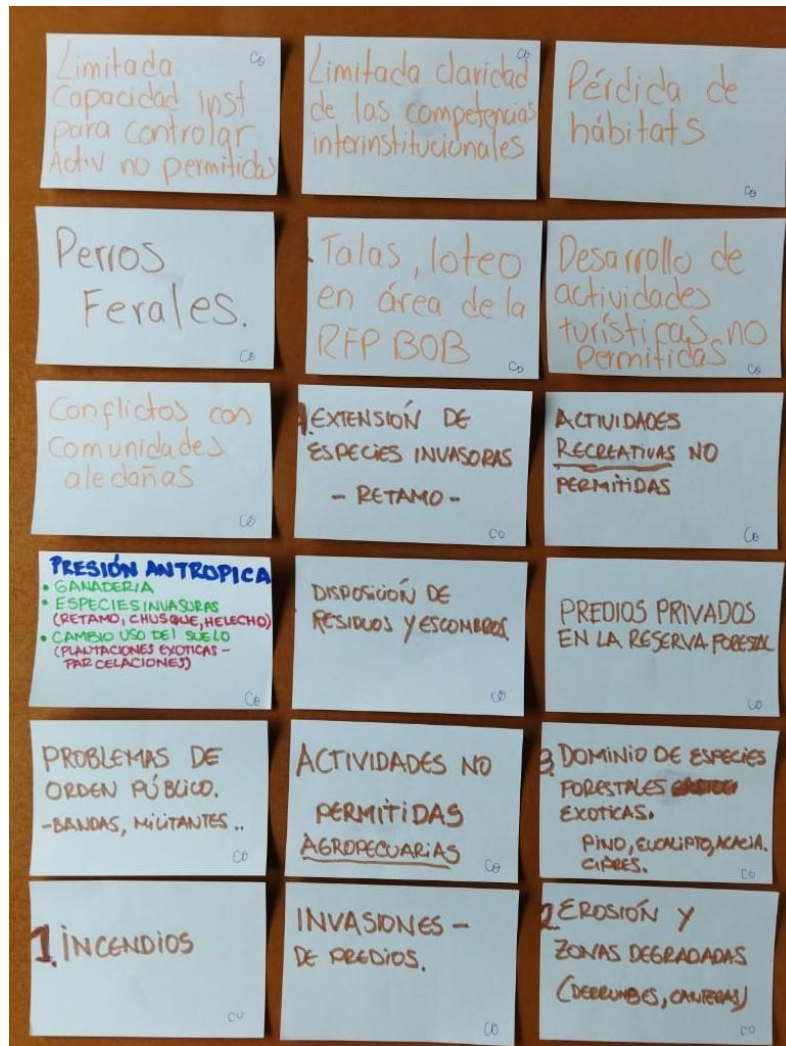 Limitada
Capacidad inst
para controlar
Activ no permitidas
Co
Limitada claridad
de las competencias
interinstitucionales
Co
Pérdida de
hábitats
Co
Perros
Ferales.
Co
Talas, loteo
en área de la
RFP BOB
Co
Desarrollo de
actividades
turísticas no
Permitidas
Co
Conflictos con
Comunidades
aledañas
Co
4. EXTENSIÓN DE
ESPECIES INVASORAS
- RETAMO -
CO
ACTIVIDADES
RECREATIVAS NO
PERMITIDAS
Co
PRESIÓN ANTROPICA
• GANADERIA
• ESPECIES INVASORAS
(RETAMO, CHUSQUE, HELECHO)
• CAMBIO USO DEL SUELO
(PLANTACIONES EXOTICAS -
PARCELACIONES)
Co
DISPOSICIÓN DE
RESIDUOS Y ESCOMBROS
CO
PREDIOS PRIVADOS
EN LA RESERVA FORESTAL
CO
PROBLEMAS DE
ORDEN PÚBLICO.
-BANDAS, MILITANTES ..
CO
ACTIVIDADES NO
PERMITIDAS
AGROPECUARIAS
Co
3. DOMINIO DE ESPECIES
FORESTALES
EXOTICAS.
PINO, EUCALIPTO, ACACIA.
CIPRES.
CO
1. INCENDIOS
CO
INVASIONES -
DE PREDIOS.
CO
2 EROSIÓN Y
ZONAS DEGRADADAS
(DERRUMBES, CANTERAS)
CO